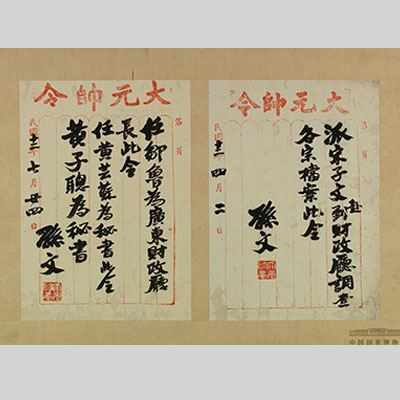 大元帥令
第 頁
派宋子文到財政廳調查
各宗檔案此令
孫文
民國十二年四月二日
大元帥令
第 頁
任鄒魯為廣東財政廳
長此令
任黃芸蘇為秘書此令
黃子聰為秘書
孫文
民國十二年七月廿四日
中国国家博物